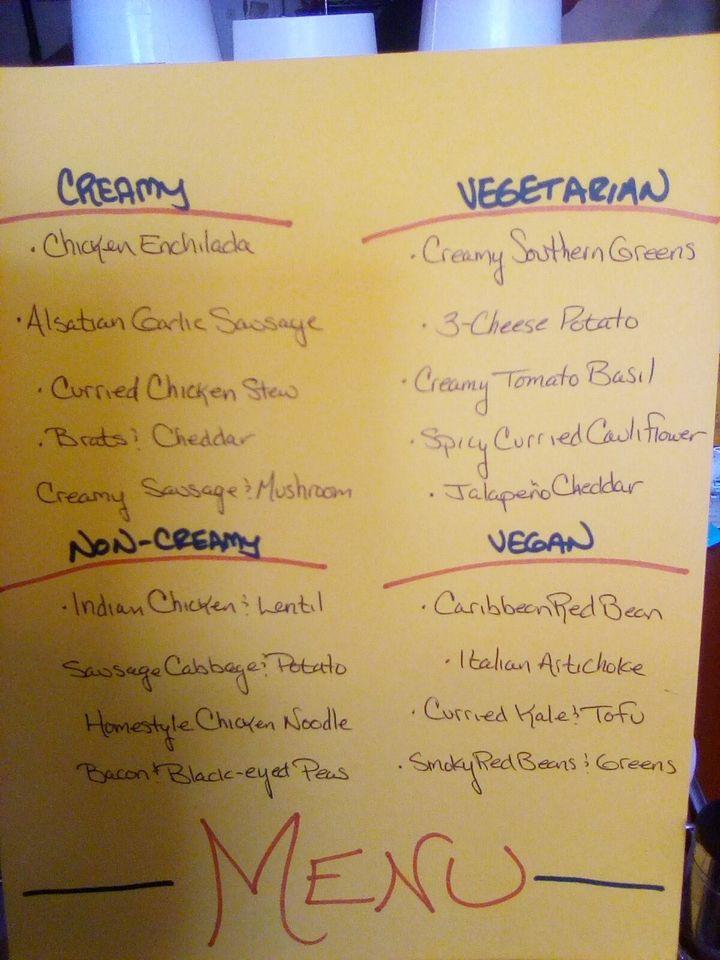 CREAMY
· Chicken Enchilada
· Alsatian Garlic Sausage
· Curried Chicken Stew
· Brats & Cheddar
Creamy Sausage & Mushroom
NON-CREAMY
· Indian Chicken & Lentil
Sausage Cabbage & Potato
Homestyle Chicken Noodle
Bacon & Black-eyed Peas
VEGETARIAN
· Creamy Southern Greens
· 3-Cheese Potato
· Creamy Tomato Basil
· Spicy Curried Cauliflower
· Jalapeño Cheddar
VEGAN
· Caribbean Red Bean
· Italian Artichoke
· Curried Kale & Tofu
· Smoky Red Beans & Greens
MENU